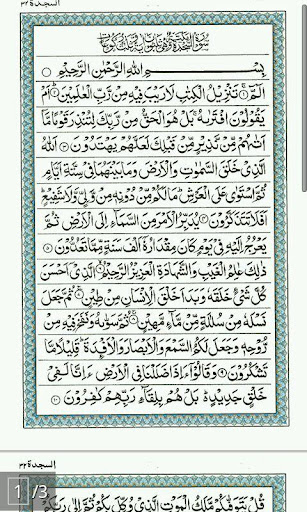 السجدة ٣٢
بِسْمِ اللهِ الرَّحْمٰنِ الرَّحِيْمِ
الٓمّٓ ۝١ تَنْزِيْلُ الْكِتٰبِ لَا رَيْبَ فِيْهِ مِنْ رَّبِّ الْعٰلَمِيْنَ ۝٢ اَمْ
يَقُوْلُوْنَ افْتَرٰىهُ بَلْ هُوَ الْحَقُّ مِنْ رَّبِّكَ لِتُنْذِرَ قَوْمًا مَّآ
اَتٰىهُمْ مِّنْ نَّذِيْرٍ مِّنْ قَبْلِكَ لَعَلَّهُمْ يَهْتَدُوْنَ ۝٣ اَللهُ
الَّذِيْ خَلَقَ السَّمٰوٰتِ وَالْاَرْضَ وَمَا بَيْنَهُمَا فِيْ سِتَّةِ اَيَّامٍ
ثُمَّ اسْتَوٰى عَلَى الْعَرْشِ مَا لَكُمْ مِّنْ دُوْنِهٖ مِنْ وَّلِيٍّ وَّلَا شَفِيْعٍ
اَفَلَا تَتَذَكَّرُوْنَ ۝٤ يُدَبِّرُ الْاَمْرَ مِنَ السَّمَآءِ اِلَى الْاَرْضِ ثُمَّ
يَعْرُجُ اِلَيْهِ فِيْ يَوْمٍ كَانَ مِقْدَارُهٗٓ اَلْفَ سَنَةٍ مِّمَّا تَعُدُّوْنَ ۝٥
ذٰلِكَ عٰلِمُ الْغَيْبِ وَالشَّهَادَةِ الْعَزِيْزُ الرَّحِيْمُ ۝٦ الَّذِيْٓ اَحْسَنَ
كُلَّ شَيْءٍ خَلَقَهٗ وَبَدَاَ خَلْقَ الْاِنْسَانِ مِنْ طِيْنٍ ۝٧ ثُمَّ جَعَلَ
نَسْلَهٗ مِنْ سُلٰلَةٍ مِّنْ مَّآءٍ مَّهِيْنٍ ۝٨ ثُمَّ سَوّٰىهُ وَنَفَخَ فِيْهِ مِنْ
رُّوْحِهٖ وَجَعَلَ لَكُمُ السَّمْعَ وَالْاَبْصَارَ وَالْاَفْـِٕدَةَ قَلِيْلًا مَّا
تَشْكُرُوْنَ ۝٩ وَقَالُوْٓا ءَاِذَا ضَلَلْنَا فِي الْاَرْضِ ءَاِنَّا لَفِيْ
خَلْقٍ جَدِيْدٍ بَلْ هُمْ بِلِقَآءِ رَبِّهِمْ كٰفِرُوْنَ ۝١٠
السجدة ٣٢
قُلْ يَتَوَفّٰىكُمْ مَّلَكُ الْمَوْتِ الَّذِيْ وُكِّلَ بِكُمْ ثُمَّ اِلٰى رَبِّكُمْ
1 /3